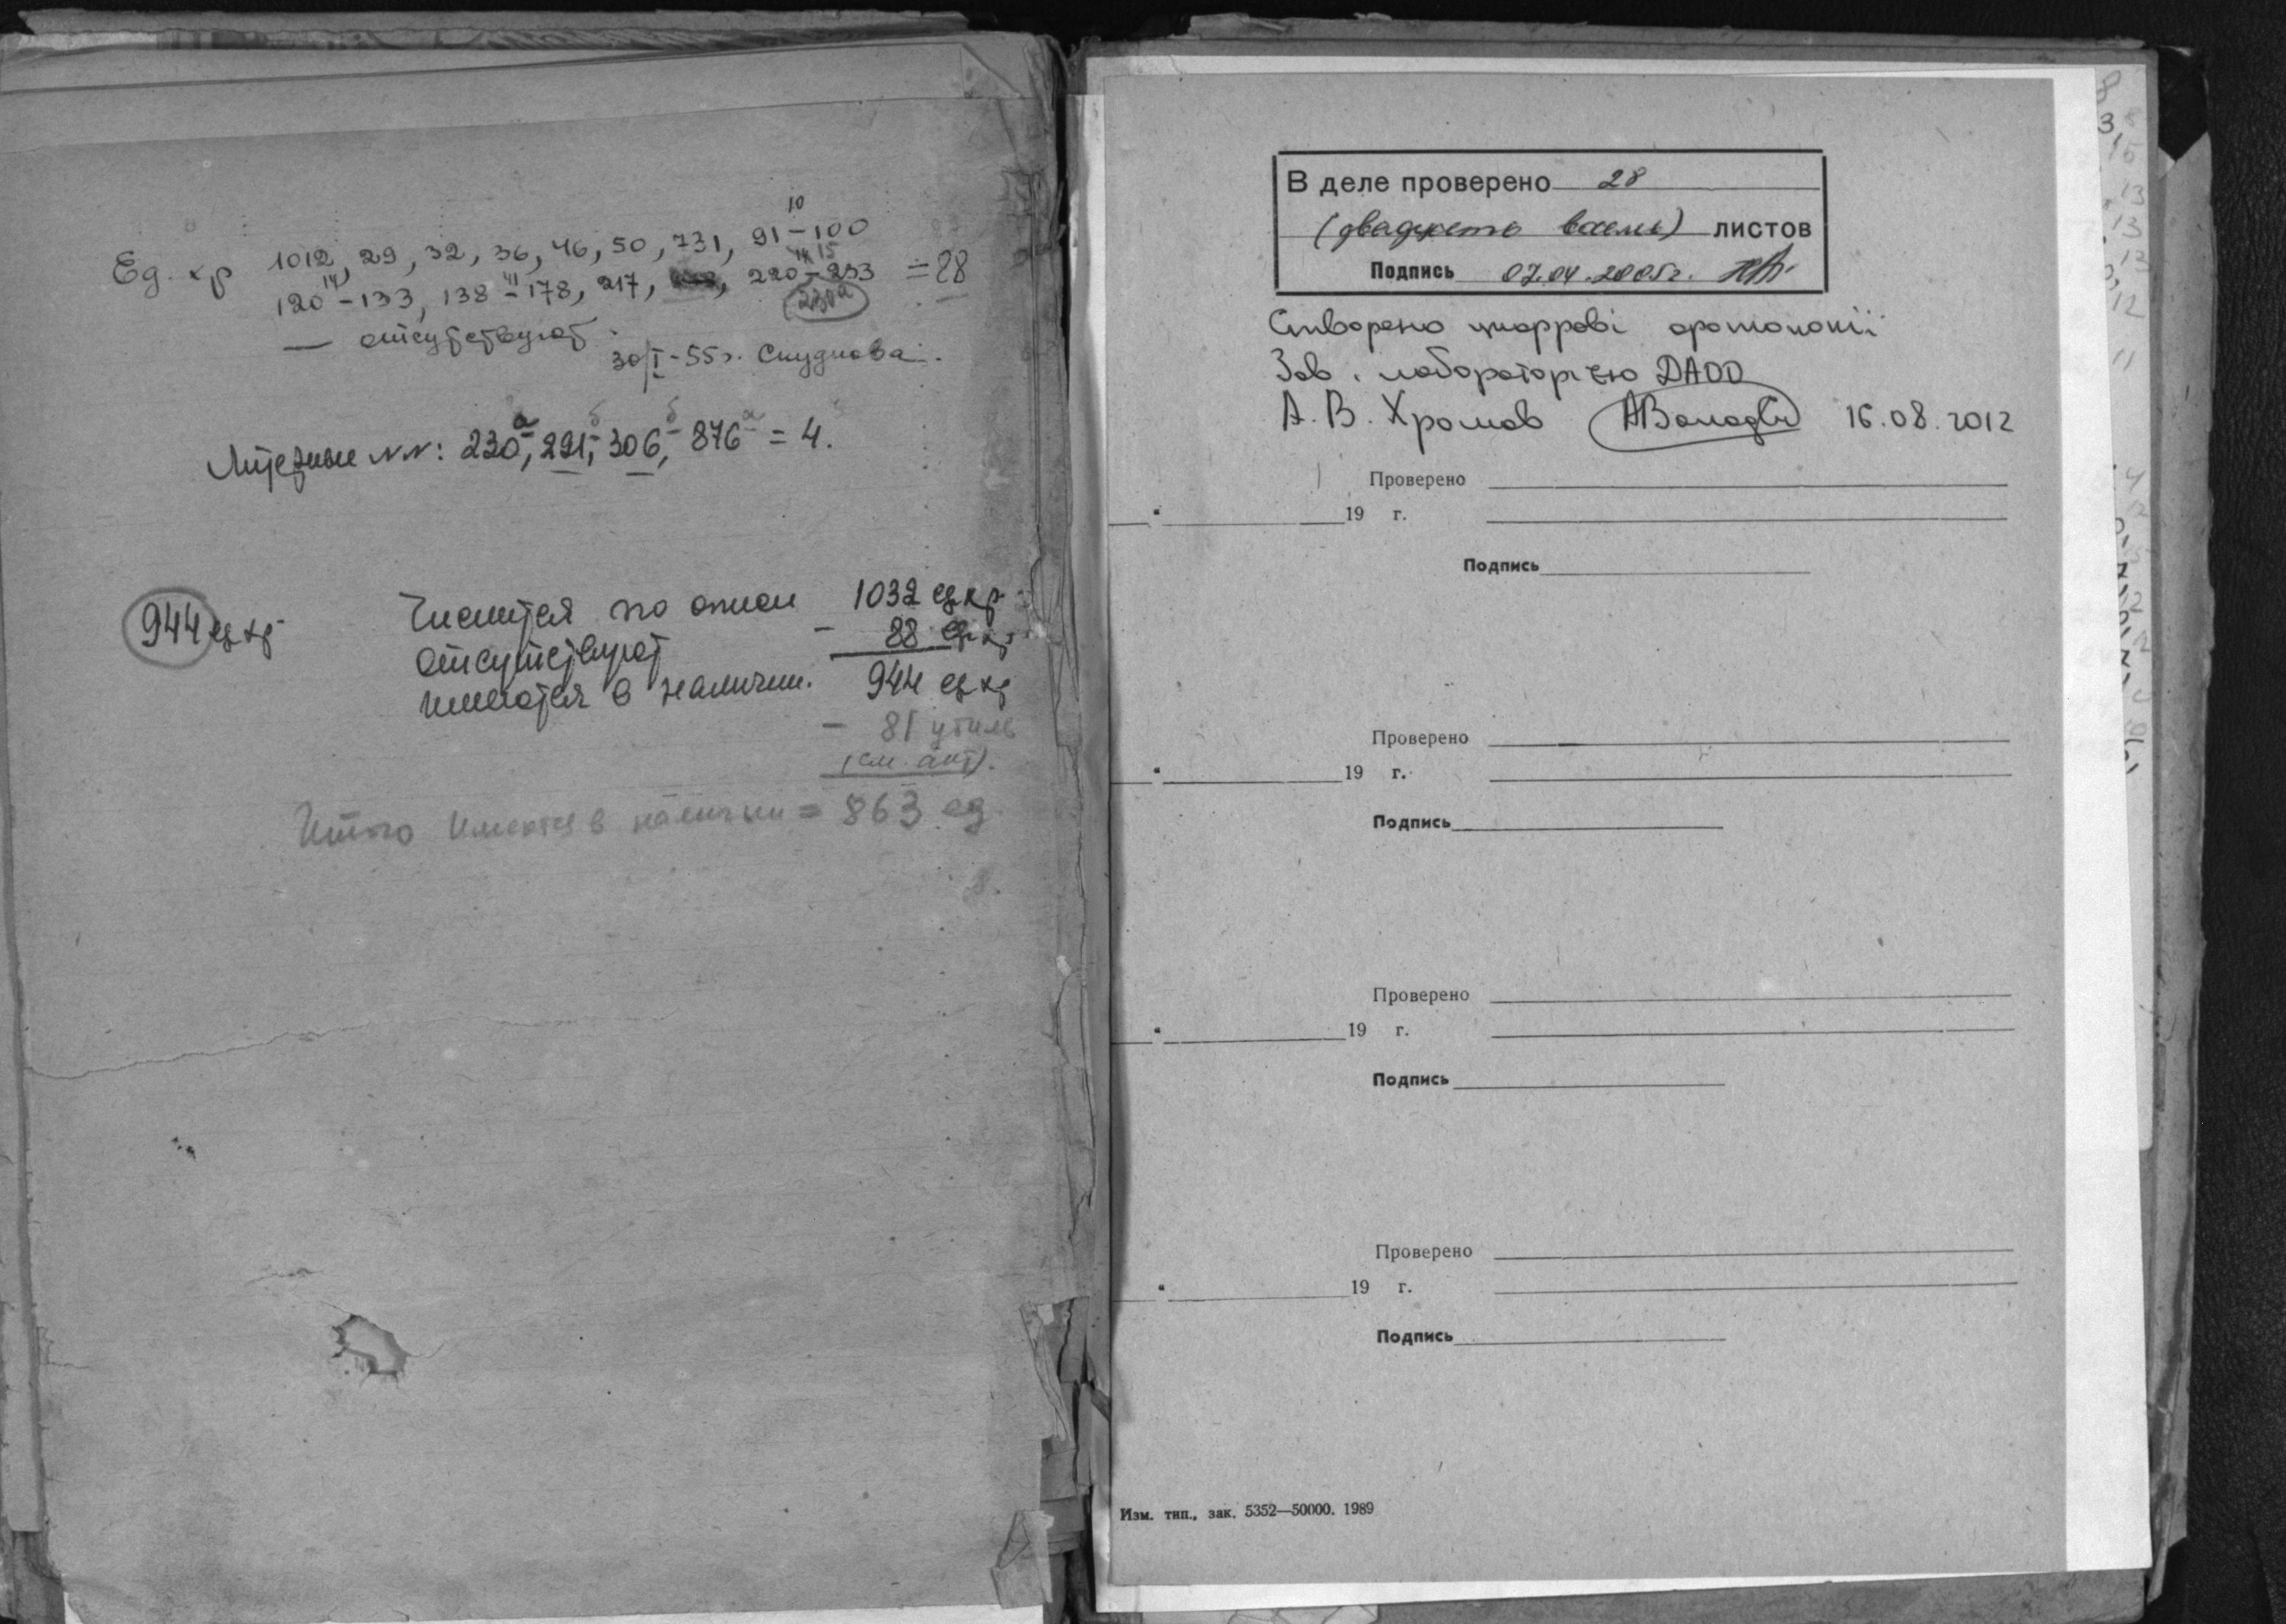 10
Ед. хр 1012, 29, 32, 36, 46, 50, 731, 91-100
14 41 14 15
120-133, 138-178, 217, 220-233 = 88
230а
— отсутствуют.
30/I-55г. Скуднова.
Литерные №№: 230а, 291б, 306б, 876а = 4.
944 ед хр
Числится по описи 1032 ед хр
отсутствуют - 88 ед хр
имеются в наличии. 944 ед хр
- 81 утиль
(см. акт).
Итого имеется в наличии = 863 ед.
В деле проверено 28
(двадцать восемь) листов
Подпись 07.04.2005г.
Створено цифрові фотокопії
Зав. лабораторією ДАОО
А. В. Хромов 16.08.2012
Проверено
" 19 г.
Подпись
Проверено
" 19 г.
Подпись
Проверено
" 19 г.
Подпись
Проверено
" 19 г.
Подпись
Изм. тип., зак. 5352—50000. 1989